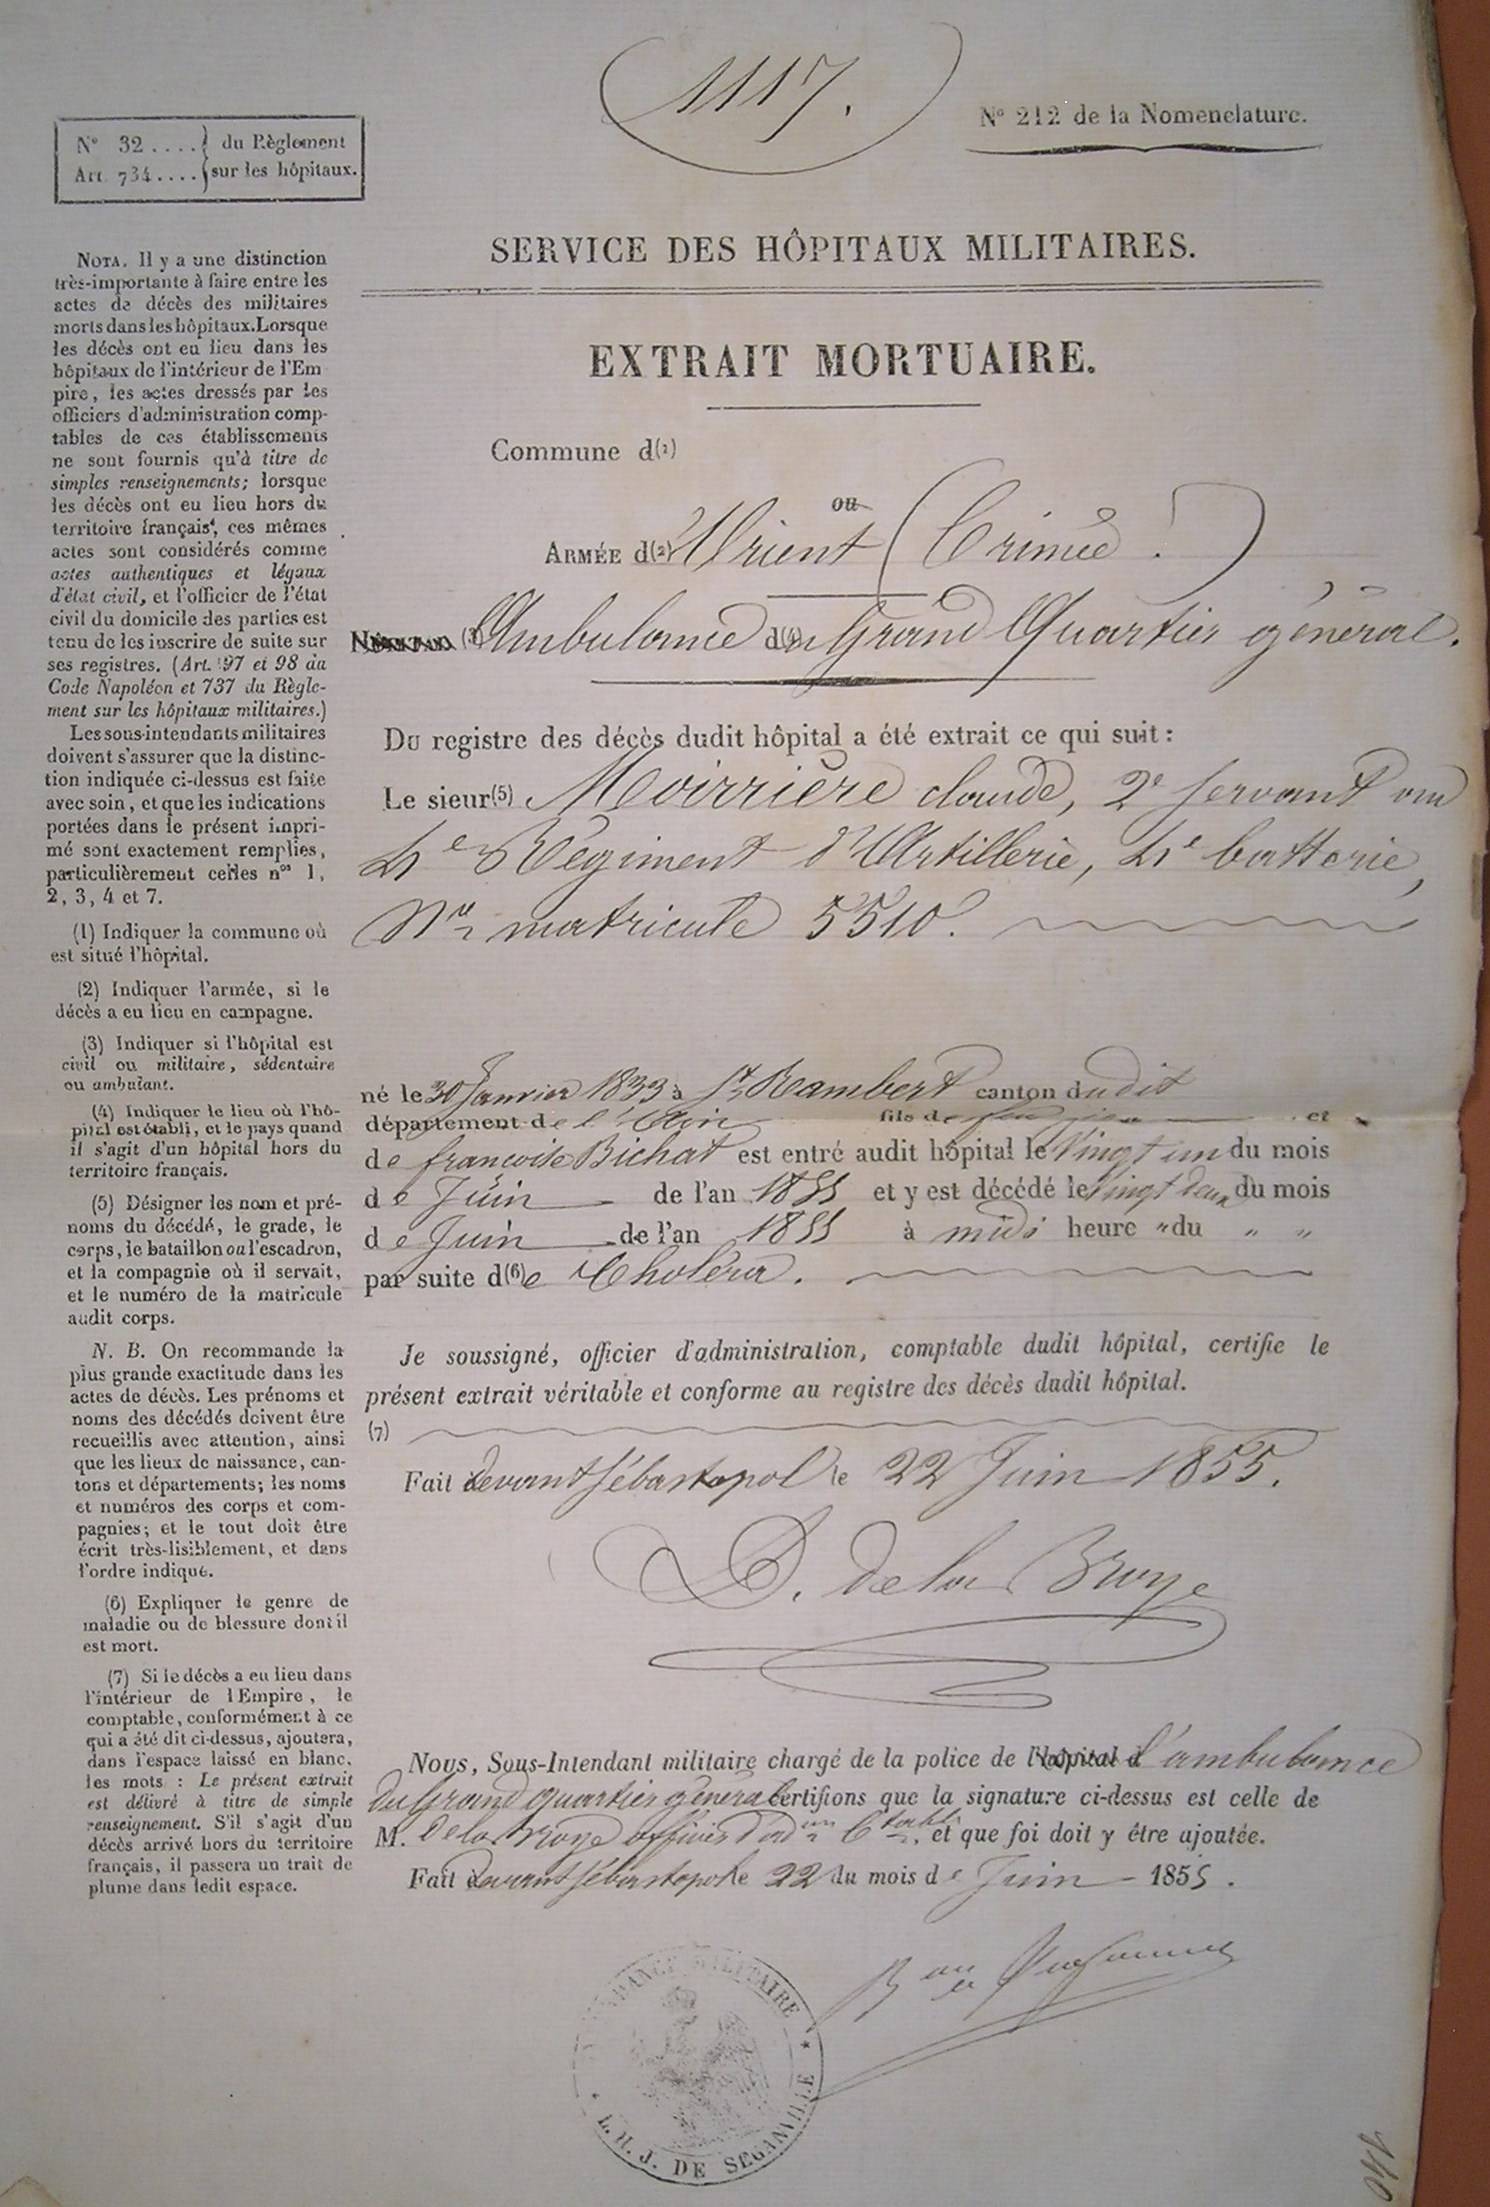 1117.
N° 212 de la Nomenclature.
N° 32 .... du Règlement
Art. 734 .... sur les hôpitaux.
SERVICE DES HÔPITAUX MILITAIRES.
EXTRAIT MORTUAIRE.
Commune d(1)
ou
ARMÉE d(2) Orient (Crimée.)
HÔPITAL (3) Ambulance d(4)u Grand Quartier général.
Du registre des décès dudit hôpital a été extrait ce qui suit :
Le sieur(5) Moirrière claude, 2e servant au
4e Régiment d'Artillerie, 4e batterie,
No matricule 5510.
né le 30 Janvier 1833 à St Rambert canton dudit
département de l'Ain fils de feu jean et
de francoise Bichat est entré audit hôpital le vingt un du mois
de Juin de l'an 1855 et y est décédé le vingt deux du mois
de Juin de l'an 1855 à midi heure " du " "
par suite d(6)e Choléra.
Je soussigné, officier d'administration, comptable dudit hôpital, certifie le
présent extrait véritable et conforme au registre des décès dudit hôpital.
(7)
Fait devant Sébastopol le 22 Juin 1855.
D. de la Broye
Nous, Sous-Intendant militaire chargé de la police de l'hôpital d l'ambulance
du Grand quartier général certifions que la signature ci-dessus est celle de
M. De la Broye officier d'adon Ctable, et que foi doit y être ajoutée.
Fait devant Sébastopol le 22 du mois de Juin 1855.
INTENDANCE MILITAIRE
L. H. J. DE SÉGANVILLE
140
NOTA. Il y a une distinction
très-importante à faire entre les
actes de décès des militaires
morts dans les hôpitaux. Lorsque
les décès ont eu lieu dans les
hôpitaux de l'intérieur de l'Em
pire, les actes dressés par les
officiers d'administration comp-
tables de ces établissements
ne sont fournis qu'à titre de
simples renseignements; lorsque
les décès ont eu lieu hors du
territoire français, ces mêmes
actes sont considérés comme
actes authentiques et légaux
d'état civil, et l'officier de l'état
civil du domicile des parties est
tenu de les inscrire de suite sur
ses registres. (Art. 97 et 98 du
Code Napoléon et 737 du Règle-
ment sur les hôpitaux militaires.)
Les sous-intendants militaires
doivent s'assurer que la distinc-
tion indiquée ci-dessus est faite
avec soin, et que les indications
portées dans le présent impri-
mé sont exactement remplies,
particulièrement celles nos 1,
2, 3, 4 et 7.
(1) Indiquer la commune où
est situé l'hôpital.
(2) Indiquer l'armée, si le
décès a eu lieu en campagne.
(3) Indiquer si l'hôpital est
civil ou militaire, sédentaire
ou ambulant.
(4) Indiquer le lieu où l'hô-
pital est établi, et le pays quand
il s'agit d'un hôpital hors du
territoire français.
(5) Désigner les nom et pré-
noms du décédé, le grade, le
corps, le bataillon ou l'escadron,
et la compagnie où il servait,
et le numéro de la matricule
audit corps.
N. B. On recommande la
plus grande exactitude dans les
actes de décès. Les prénoms et
noms des décédés doivent être
recueillis avec attention, ainsi
que les lieux de naissance, can-
tons et départements; les noms
et numéros des corps et com-
pagnies; et le tout doit être
écrit très-lisiblement, et dans
l'ordre indiqué.
(6) Expliquer le genre de
maladie ou de blessure dont il
est mort.
(7) Si le décès a eu lieu dans
l'intérieur de l'Empire, le
comptable, conformément à ce
qui a été dit ci-dessus, ajoutera,
dans l'espace laissé en blanc,
les mots : Le présent extrait
est délivré à titre de simple
renseignement. S'il s'agit d'un
décès arrivé hors du territoire
français, il passera un trait de
plume dans ledit espace.